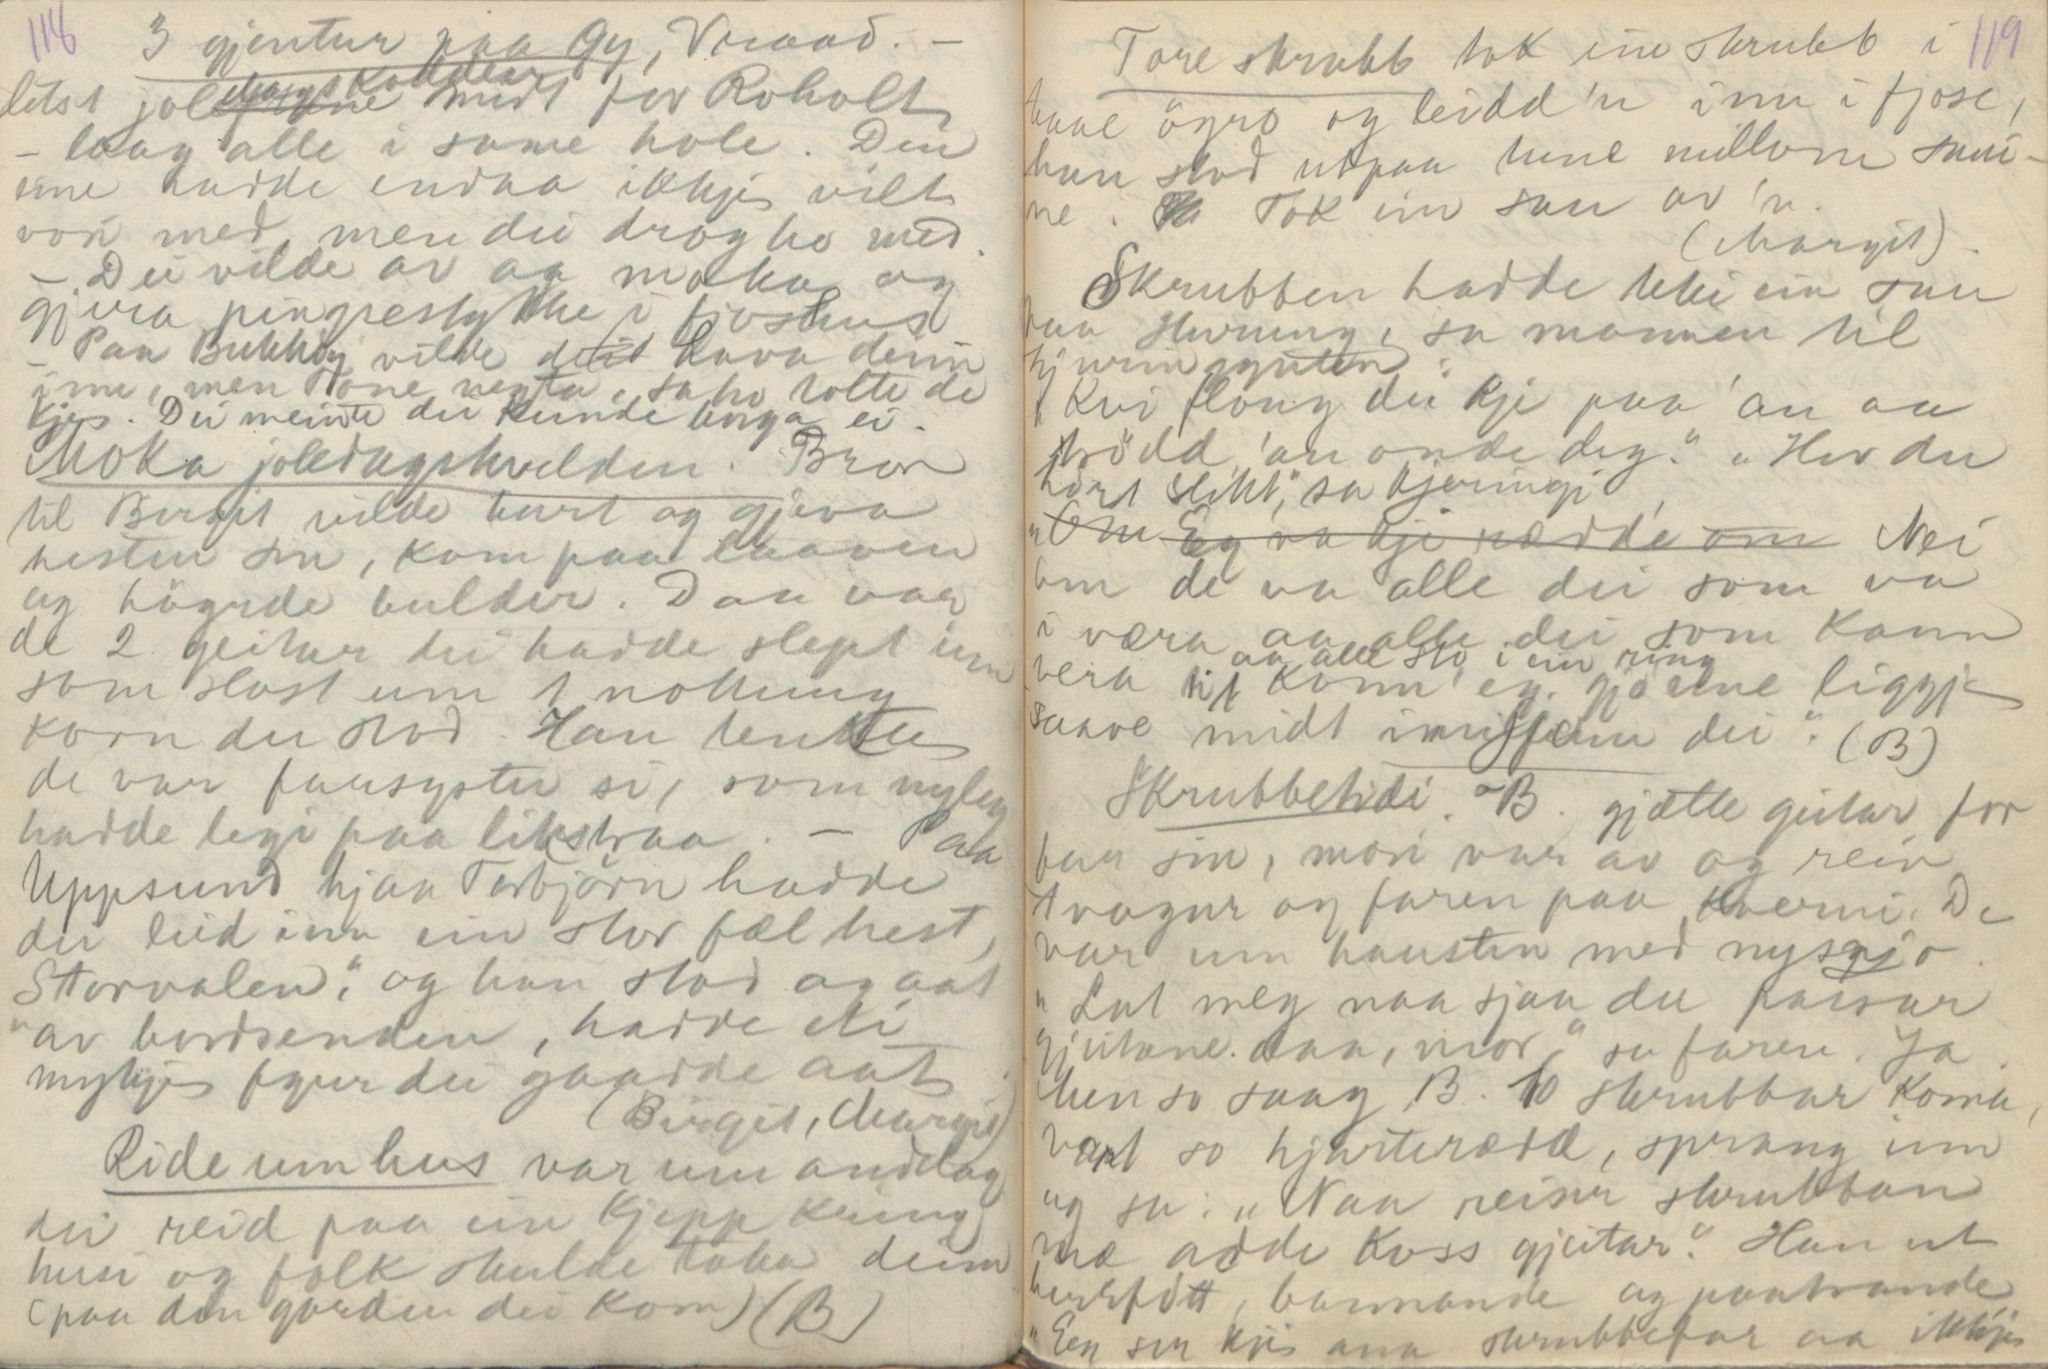 118
3 gjentur paa Gy, Vraad. –
litst joledagskvelden midt for Roholt
– laag alle i same hole. Den
eine hadde endaa ikkje vilt
vori med, men dei drog ho med.
– Dei vilde av aa moka og
gjera pingrestykke i fjoshus
– Paa Bukkøy vilde dei hava deim
inn, men Tone negta, sa ho tolte de
kje. Dei meinte dei kunde berga ei.
Moka joledagskvelden. Bror
til Birgit vilde burt og gjeva
hesten sin, kom paa laaven
og høyrde bulder. Daa var
de 2 geitur dei hadde slept inn
som slost um 1 nottung
korn der stod. Han tenkte
de var farsyster si, som nyleg
hadde legi paa likstraa. – Paa
Uppsund hjaa Torbjörn hadde
dei leid inn ein stor fæl hest,
"Storvalen", og han stod og aat
av bordsenden, hadde eti
mykje fyrr dei gaadde aat
(Birgit, Margit)
Ride um hus var um anddag
dei reid paa ein kjepp kring
husi og folk skulde taka deim
(paa den garden dei kom) (B)
119
Tore skrubb tok ein skrubb i
øyro og leidd'n inn i fjose,
han stod utpaa tune millom saui-
ne. Tok ein sau av'n.
(Margit) –
Skrubben hadde teke ein sau
paa Skurung, sa mannen til
"Kvi flaug du kje paa 'an aa
trödd 'an onde deg." "Hev du
hört slikt", sa kjeringi
"Om Eg va kje rædde om Nei
om de va alle dei som va
i væra aa alle dei som kann
vera til aa alle sto i ein ring
konn' eg gjönne liggje
saave midt imyllom dei". (B)
Skrubbetidi. B. gjætte geitar for
far sin, mori var av og reiv
tvagur og faren paa kverni. De
var um hausten med nysnjo.
"Lat meg naa sjaa du passar
gjeitane daa, mor," sa faren. Ja
men so saag B. 10 skrubbar koma,
vart so hjarterædd, sprang inn
og sa: "Naa reiser skrubban
mæ adde koss gjeitar". Han ut
berrfött, bannande og paatrande
"Eg ser kje ana skrubbefar aa ikkje